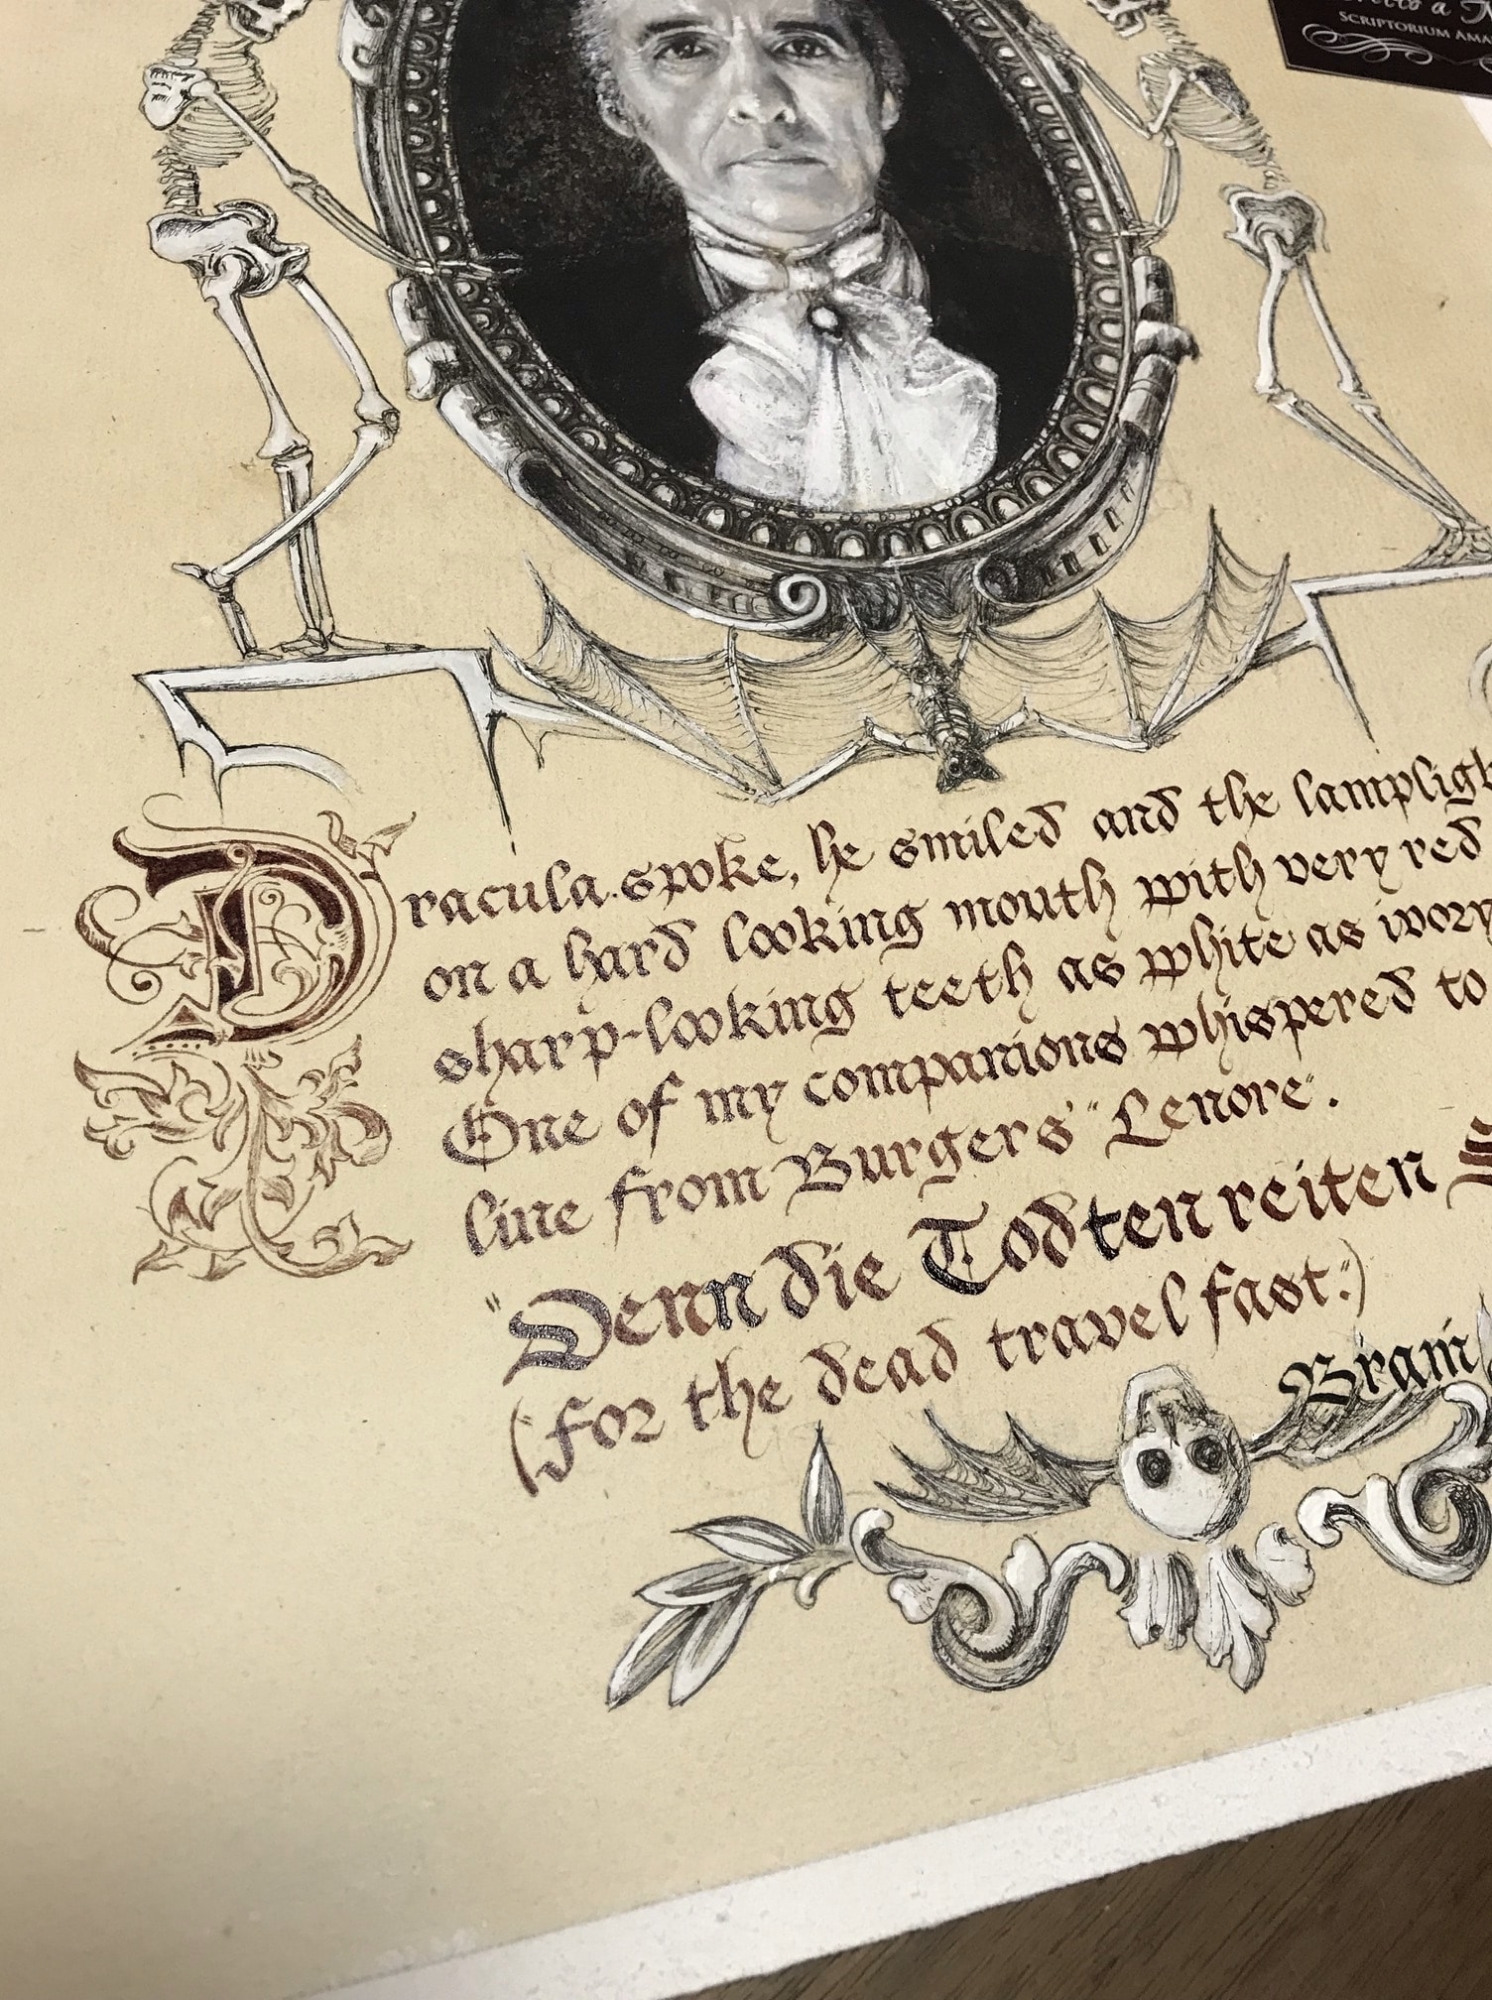 a
SCRIPTORIUM
Dracula spoke, he smiled and the
on a hard looking mouth with very red
sharp-looking teeth as white as ivory
One of my companions whispered to
line from Burgers' "Lenore".
"Denn die Todten reiten
("for the dead travel fast.")
Bram